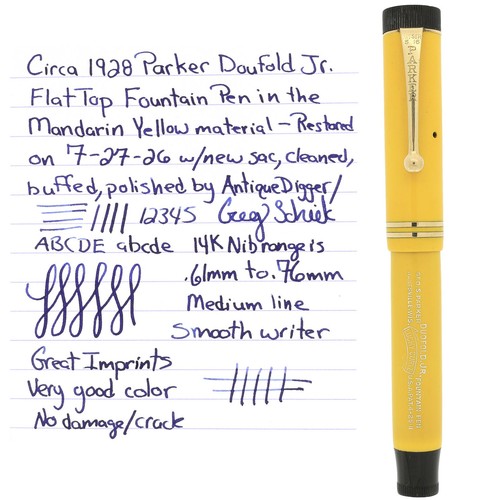 Circa 1928 Parker Doufold Jr.
Flat Top Fountain Pen in the
Mandarin Yellow material - Restored
on 7-27-26 w/new sac, cleaned,
buffed, polished by AntiqueDigger/
12345 Greg Schiek
ABCDE abcde 14K Nib range is
.61mm to .76mm
Medium line
Smooth writer
Great Imprints
Very good color
No damage/crack
PARKER
DUOFOLD JR. FOUNTAIN PEN